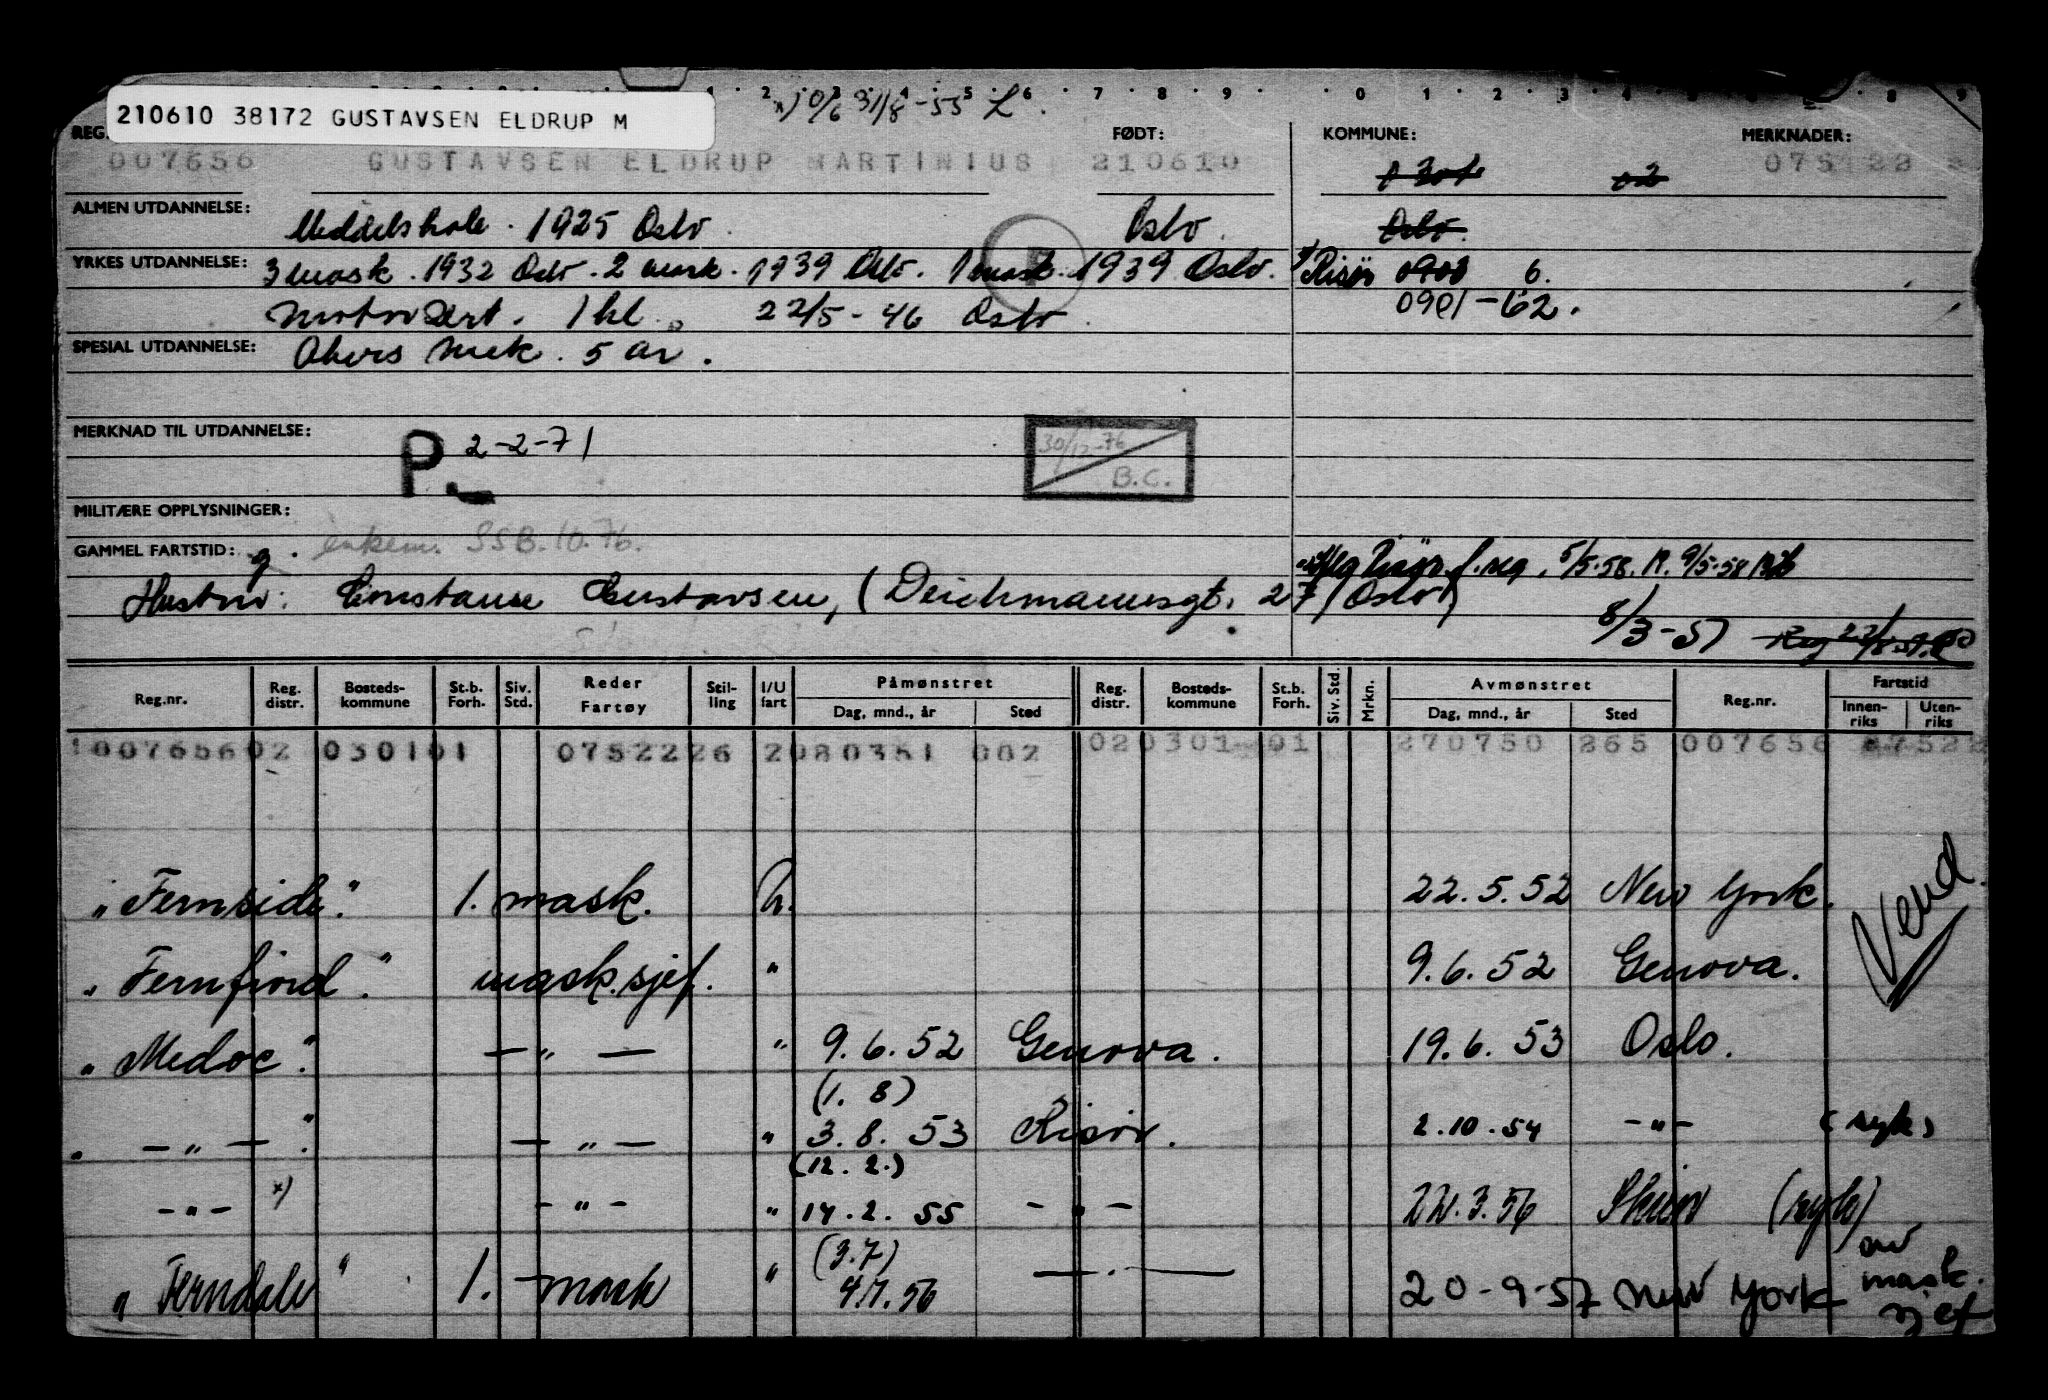 210610 38172 GUSTAVSEN ELDRUP M
x) 0/6 31/8-55 L.
FØDT: KOMMUNE: MERKNADER:
007656 GUSTAVSEN ELDRUP MARTINIUS 210610 0301 02 075122
ALMEN UTDANNELSE: Middelskole. 1925 Oslo. Oslo. Oslo.
YRKES UTDANNELSE: 3 mask. 1932 Oslo. 2 mask. 1939 Oslo. 1 mask. 1939 Oslo. Risør 0901 6.
Motorsert. 1 kl. 22/5-46 Oslo 0901-62.
SPESIAL UTDANNELSE: Akers mek. 5 år.
MERKNAD TIL UTDANNELSE: P 2-2-71 30/12-76 B.C.
MILITÆRE OPPLYSNINGER:
GAMMEL FARTSTID: SSB.10.76. Risør f.reg. 5/5-58. 9/5-58
Hustru: Constanse Gustavsen, (Deichmannsgt. 27 Oslo)
8/3-57 Reg
Reg.nr. Reg. distr. Bosteds-kommune St.b. Forh. Siv. Std. Reder Fartøy Stil-ling I/U fart Påmønstret Dag, mnd., år Sted Reg. distr. Bosteds-kommune St.b. Forh. Siv. Std. Mrkn. Avmønstret Dag, mnd., år Sted Reg.nr. Fartstid Innen-riks Uten-riks
00765602 030101 0752226 2080351 002 020301 01 270750 265 007656 0752
"Fernside" 1. mask. U. 22.5.52 New York.
Vend
"Fernfjord" mask.sjef. " 9.6.52 Genova.
"Medoc" — " — " 9.6.52 Genova. 19.6.53 Oslo.
(1.8)
" — " — " — " — " 3.8.53 Risør. 2.10.54 - " - (syk)
(12.2.)
- " - x) - " - " 14.2.55 - " - 22.3.56 Skien (syk)
(3.7)
"Ferndale" 1. mask " 4.7.56 — " — 20-9-57 New York av mask. sjef